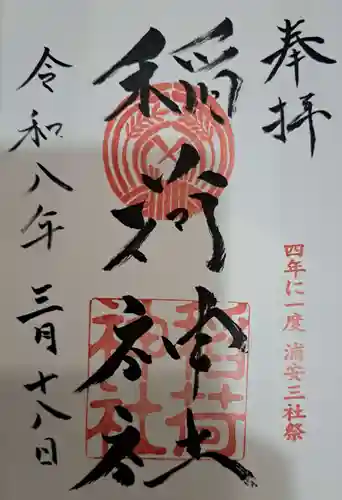 奉拝
四年に一度 浦安三社祭
稲荷神社
稲荷神社
令和八年三月十八日